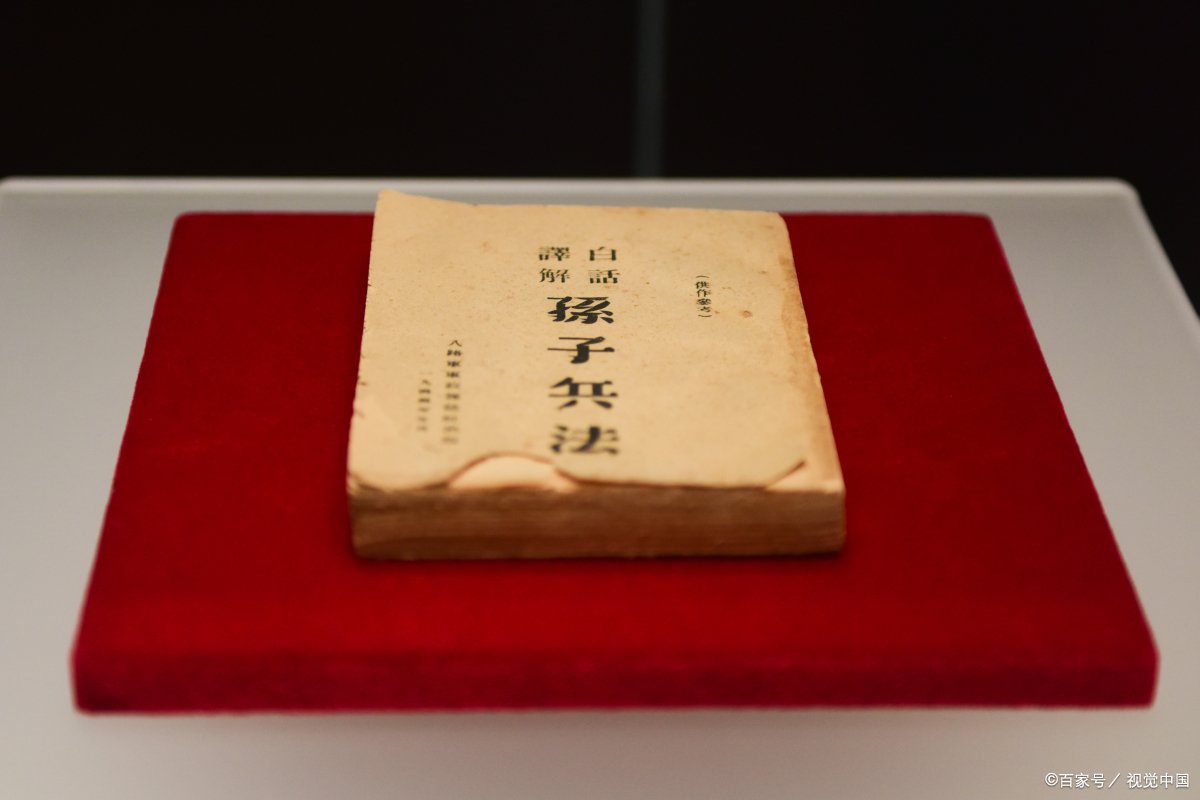 （供作參考）
白話
譯解
孫子兵法
八路軍軍政
©百家号／视觉中国